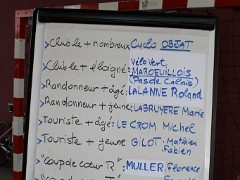 > Club le + nombreux Cyclo OBJAT
Vélo Vert
> Club le + éloigné : MAROEUILLOIS
(Pas de Calais)
> Randonneur + âgé : LALANNE Roland
Randonneur + jeune : LABRUYERE Marie
> Touriste + âgé : LE CROM Michel
> Touriste + jeune GILOT : Mathieu
Fabien
> "Coup de coeur R" : MULLER Florence